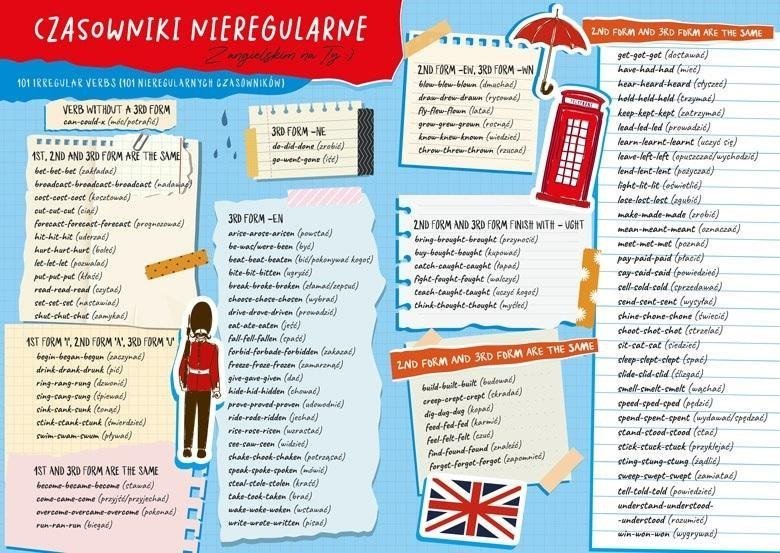 CZASOWNIKI NIEREGULARNE
Z angielskim na Ty :)
101 IRREGULAR VERBS (101 NIEREGULARNYCH CZASOWNIKÓW)
VERB WITHOUT A 3RD FORM
can-could-x (móc/potrafić)
1ST, 2ND AND 3RD FORM ARE THE SAME
bet-bet-bet (zakładać)
broadcast-broadcast-broadcast (nadawać)
cost-cost-cost (kosztować)
cut-cut-cut (ciąć)
forecast-forecast-forecast (prognozować)
hit-hit-hit (uderzać)
hurt-hurt-hurt (boleć)
let-let-let (pozwalać)
put-put-put (kłaść)
read-read-read (czytać)
set-set-set (nastawiać)
shut-shut-shut (zamykać)
1ST FORM 'I', 2ND FORM 'A', 3RD FORM 'U'
begin-began-begun (zaczynać)
drink-drank-drunk (pić)
ring-rang-rung (dzwonić)
sing-sang-sung (śpiewać)
sink-sank-sunk (tonąć)
stink-stank-stunk (śmierdzieć)
swim-swam-swum (pływać)
1ST AND 3RD FORM ARE THE SAME
become-became-become (stawać)
come-came-come (przyjść/przyjechać)
overcome-overcame-overcome (pokonać)
run-ran-run (biegać)
3RD FORM -NE
do-did-done (zrobić)
go-went-gone (iść)
3RD FORM -EN
arise-arose-arisen (powstać)
be-was/were-been (być)
beat-beat-beaten (bić/pokonywać kogoś)
bite-bit-bitten (ugryźć)
break-broke-broken (złamać/zepsuć)
choose-chose-chosen (wybrać)
drive-drove-driven (prowadzić)
eat-ate-eaten (jeść)
fall-fell-fallen (spaść)
forbid-forbade-forbidden (zakazać)
freeze-froze-frozen (zamarznąć)
give-gave-given (dać)
hide-hid-hidden (chować)
prove-proved-proven (udowodnić)
ride-rode-ridden (jechać)
rise-rose-risen (wzrastać)
see-saw-seen (widzieć)
shake-shook-shaken (potrząsać)
speak-spoke-spoken (mówić)
steal-stole-stolen (kraść)
take-took-taken (brać)
wake-woke-woken (wstawać)
write-wrote-written (pisać)
2ND FORM -EW, 3RD FORM -WN
blow-blew-blown (dmuchać)
draw-drew-drawn (rysować)
fly-flew-flown (latać)
grow-grew-grown (rosnąć)
know-knew-known (wiedzieć)
throw-threw-thrown (rzucać)
2ND FORM AND 3RD FORM FINISH WITH - UGHT
bring-brought-brought (przynosić)
buy-bought-bought (kupować)
catch-caught-caught (łapać)
fight-fought-fought (walczyć)
teach-taught-taught (uczyć kogoś)
think-thought-thought (myśleć)
2ND FORM AND 3RD FORM ARE THE SAME
build-built-built (budować)
creep-crept-crept (skradać)
dig-dug-dug (kopać)
feed-fed-fed (karmić)
feel-felt-felt (czuć)
find-found-found (znaleźć)
forget-forgot-forgot (zapomnieć)
TELEPHONE
2ND FORM AND 3RD FORM ARE THE SAME
get-got-got (dostawać)
have-had-had (mieć)
hear-heard-heard (słyszeć)
hold-held-held (trzymać)
keep-kept-kept (zatrzymać)
lead-led-led (prowadzić)
learn-learnt-learnt (uczyć się)
leave-left-left (opuszczać/wychodzić)
lend-lent-lent (pożyczać)
light-lit-lit (oświetlić)
lose-lost-lost (zgubić)
make-made-made (zrobić)
mean-meant-meant (oznaczać)
meet-met-met (poznać)
pay-paid-paid (płacić)
say-said-said (powiedzieć)
sell-sold-sold (sprzedawać)
send-sent-sent (wysyłać)
shine-shone-shone (świecić)
shoot-shot-shot (strzelać)
sit-sat-sat (siedzieć)
sleep-slept-slept (spać)
slide-slid-slid (ślizgać)
smell-smelt-smelt (wąchać)
speed-sped-sped (pędzić)
spend-spent-spent (wydawać/spędzać)
stand-stood-stood (stać)
stick-stuck-stuck (przyklejać)
sting-stung-stung (żądlić)
sweep-swept-swept (zamiatać)
tell-told-told (powiedzieć)
understand-understood-
-understood (rozumieć)
win-won-won (wygrywać)